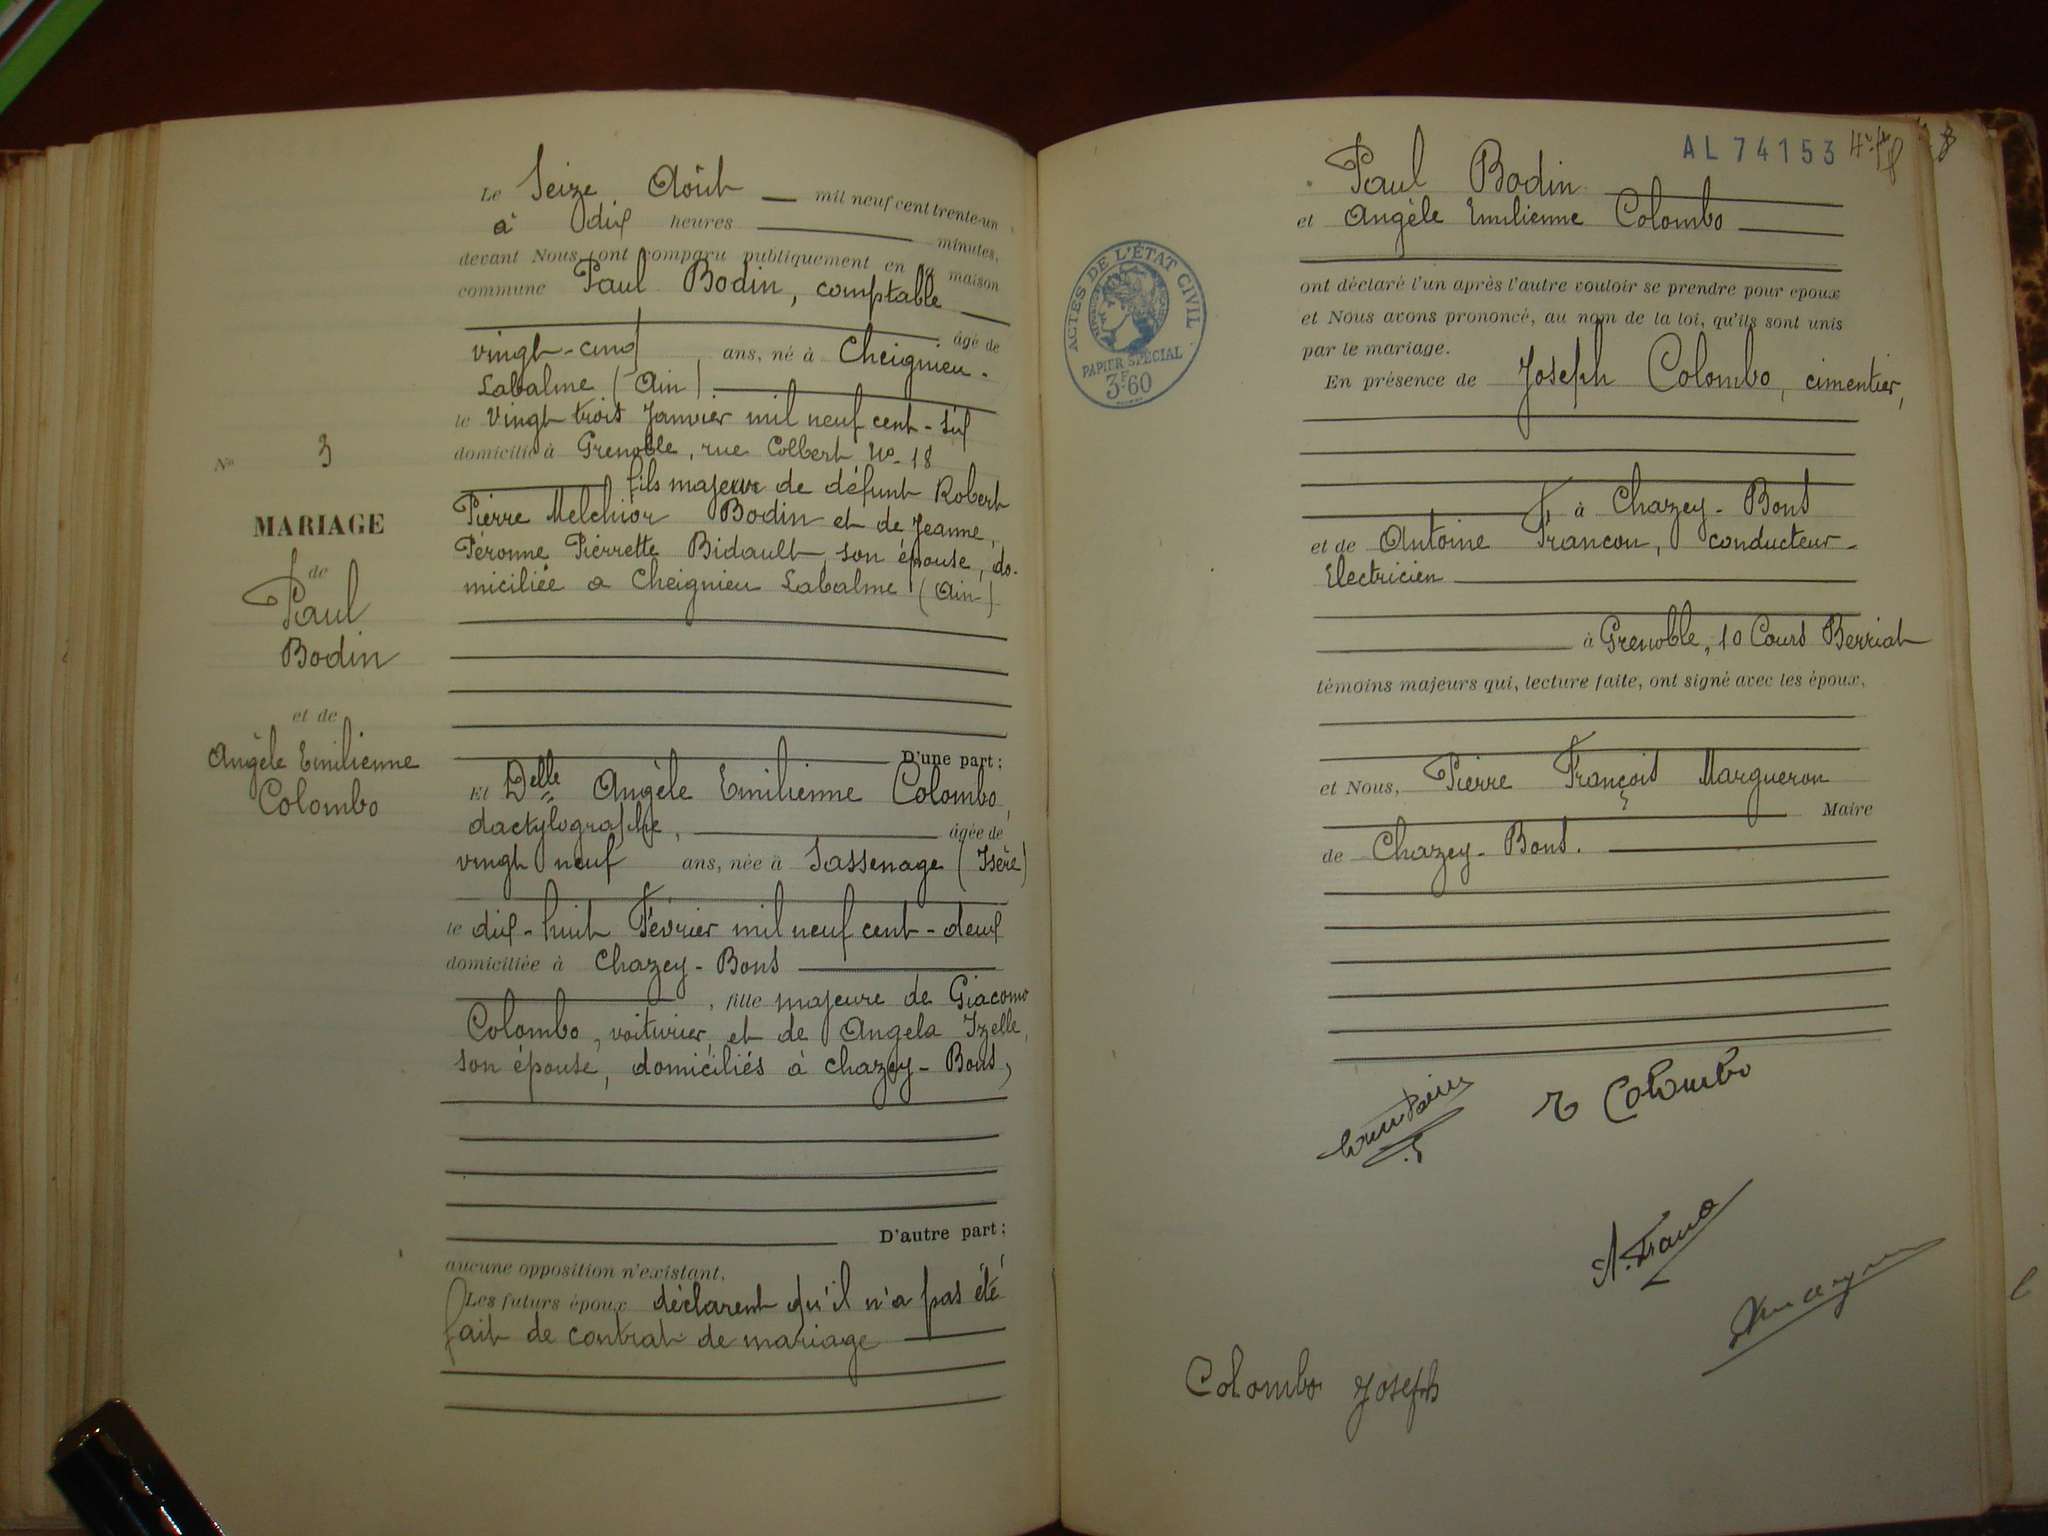 Le Seize Août mil neuf cent trente-un
à dix heures minutes,
devant Nous ont comparu publiquement en la maison
commune Paul Bodin, comptable
âgé de
vingt-cinq ans, né à Cheignieu-
Labalme (Ain)
le vingt trois Janvier mil neuf cent-six
domicilié à Grenoble, rue Colbert No 18
fils majeur de défunt Robert
Pierre Melchior Bodin et de Jeanne,
Péronne Pierrette Bidault, son épouse, do-
miciliée a Cheignieu Labalme (Ain)
D'une part;
Et Delle Angèle Emilienne Colombo,
dactylographe, âgée de
vingt neuf ans, née à Sassenage (Isère)
le dix-huit Février mil neuf cent-deux
domiciliée à Chazey-Bons
, fille majeure de Giacomo
Colombo, voiturier, et de Angela Izelle,
son épouse, domiciliés à Chazey-Bons,
D'autre part;
aucune opposition n'existant,
Les futurs époux déclarent qu'il n'a pas été
fait de contrat de mariage
No 3
MARIAGE
de
Paul
Bodin
et de
Angèle Emilienne
Colombo
AL 74153
Paul Bodin
et Angèle Emilienne Colombo
ont déclaré l'un après l'autre vouloir se prendre pour époux
et Nous avons prononcé, au nom de la loi, qu'ils sont unis
par le mariage.
En présence de Joseph Colombo, cimentier,
à Chazey-Bons
et de Antoine Francon, conducteur-
Electricien
à Grenoble, 10 Cours Berriat
témoins majeurs qui, lecture faite, ont signé avec les époux,
et Nous, Pierre François Margueron
Maire
de Chazey-Bons.
ACTES DE L'ÉTAT CIVIL
PAPIER SPÉCIAL
3F60
E Colombo
Colombo Joseph